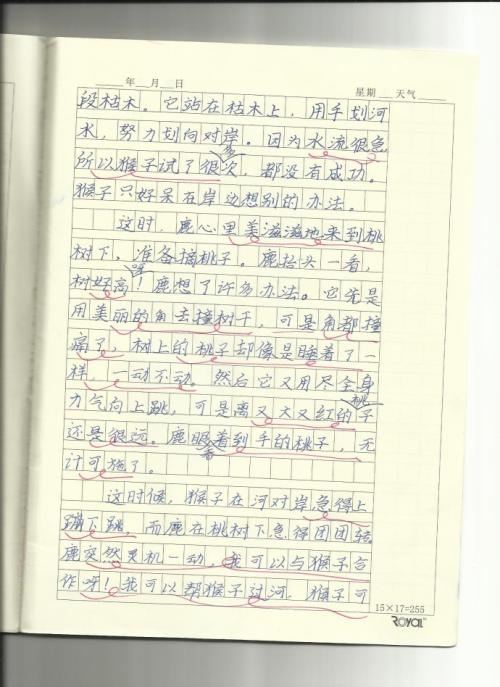 年 月 日 星期 天气
段枯木。它站在枯木上，用手划河
水，努力划向对岸。因为水流很急
多
所以猴子试了很次，都没有成功。
猴子只好呆在岸边想别的办法。
这时，鹿心里美滋滋地来到桃
树下，准备摘桃子。鹿抬头一看，
树好高！鹿想了许多办法。它先是
用美丽的角去撞树干，可是角都撞
痛了，树上的桃子却像是睡着了一
样，一动不动。然后它又用尽全身
桃
力气向上跳，可是离又大又红的子
还是很远。鹿眼着到手的桃子，无
计可施了。
这时候，猴子在河对岸急得上
蹦下跳，而鹿在桃树下急得团团转
鹿突然灵机一动，我可以与猴子合
作呀！我可以帮猴子过河，猴子可
15×17=255
ROYAL